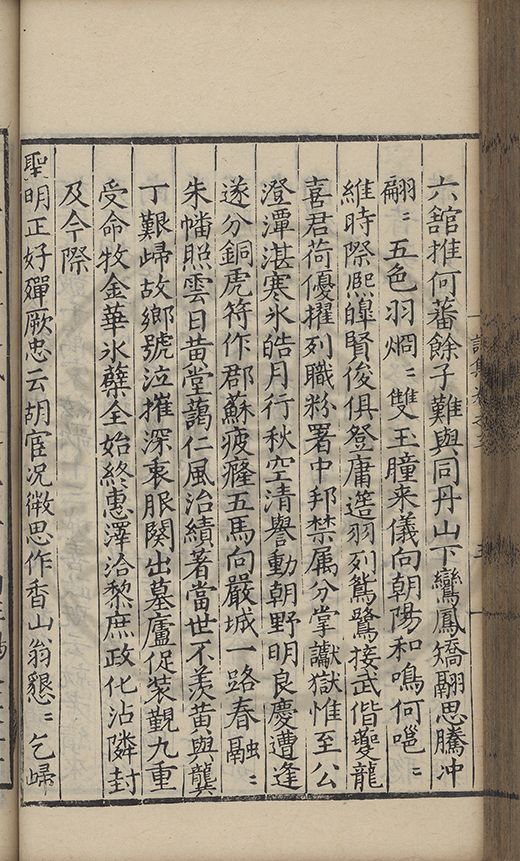 六舘推何蕃餘子難與同丹山下鸞鳳矯翮思騰冲
翮〻五色羽烱〻雙玉瞳来儀向朝陽和鳴何嗈〻
維時際熈皥賢俊俱登庸簉羽列鴛鷺接武偕夔龍
喜君荷優擢列職粉署中邦禁属分掌讞獄惟至公
澄潭湛寒氷皓月行秋空清譽動朝野明良慶遭逢
遂分銅虎符作郡蘇疲癃五馬向嚴城一路春融〻
朱幡照雲日黄堂藹仁風治績著當世不羡黄與龔
丁艱歸故鄉號泣摧深衷服闋出墓廬促装覲九重
受命牧金華氷蘖全始終惠澤洽黎庶政化沾隣封
及今際
聖明正好殫厥忠云胡宦况微思作香山翁懇〻乞歸
詩集卷之
五